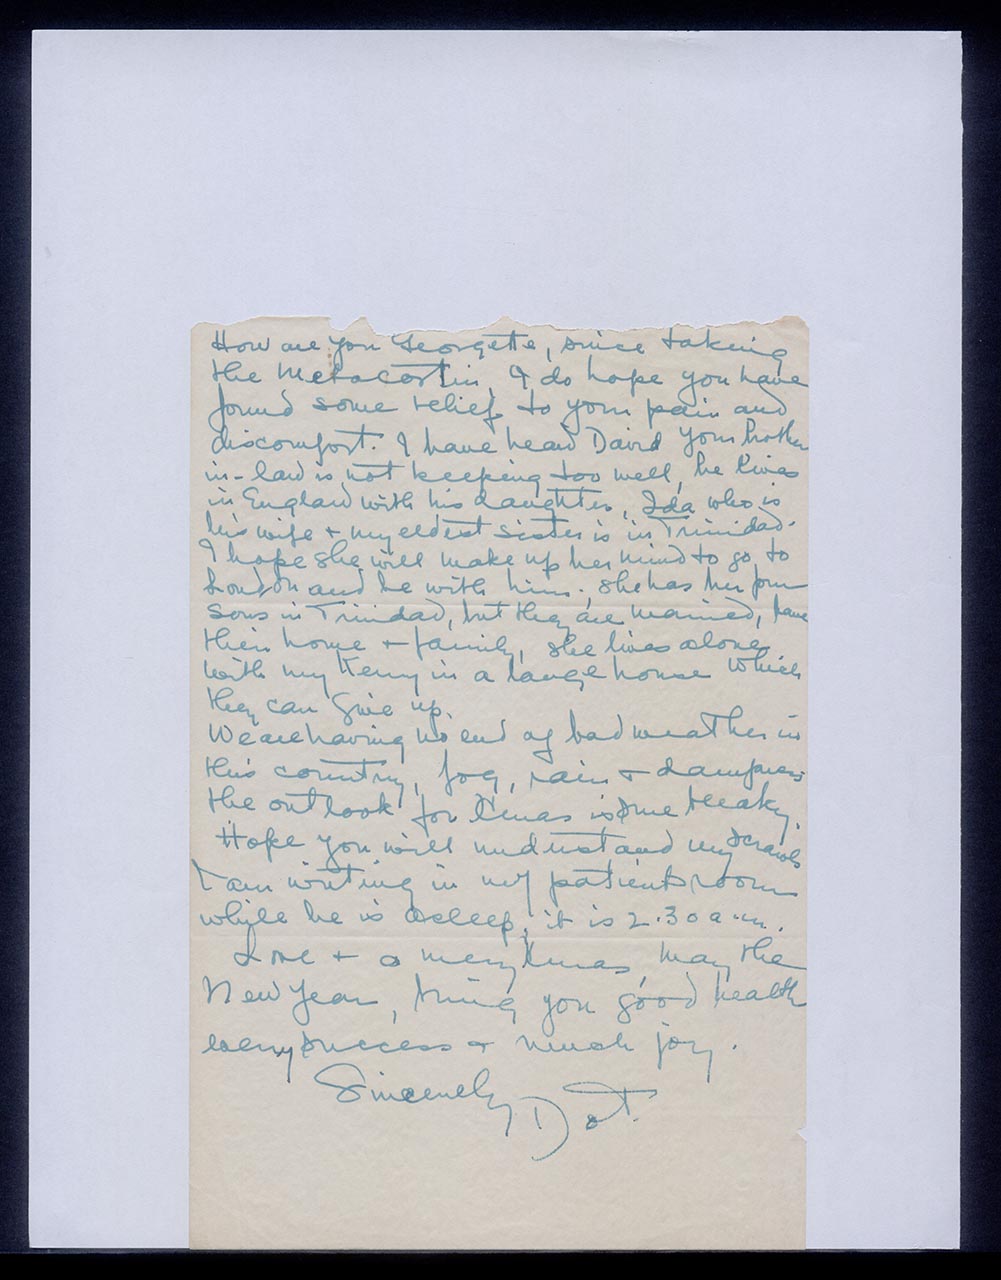 How are you Georgette, since taking
the Metacortin, I do hope you have
found some relief to your pain and
discomfort. I have heard David your brother
in-law is not keeping too well, he lives
in England with his daughter, Ida who is
his wife + my eldest sister is in Trinidad.
I hope she will make up her mind to go to
London and be with him, she has her four
sons in Trinidad, but they are married, have
their home + family, she lives alone
with my Henry in a large house which
they can give up.
We are having no end of bad weather in
this country, fog, rain + dampness
the outlook for Xmas is bleaky.
Hope you will understand my scrawls
I am writing in my patients room
while he is asleep, it is 2.30 a.m.
Love + a merry Xmas, may the
New Year, bring you good health
every success + much joy.
Sincerely Dot.